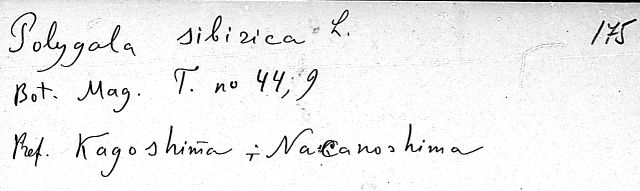 Polygala sibirica L. 175
Bot. Mag. T. no 44, 9
Pref. Kagoshima ; Nacanoshima